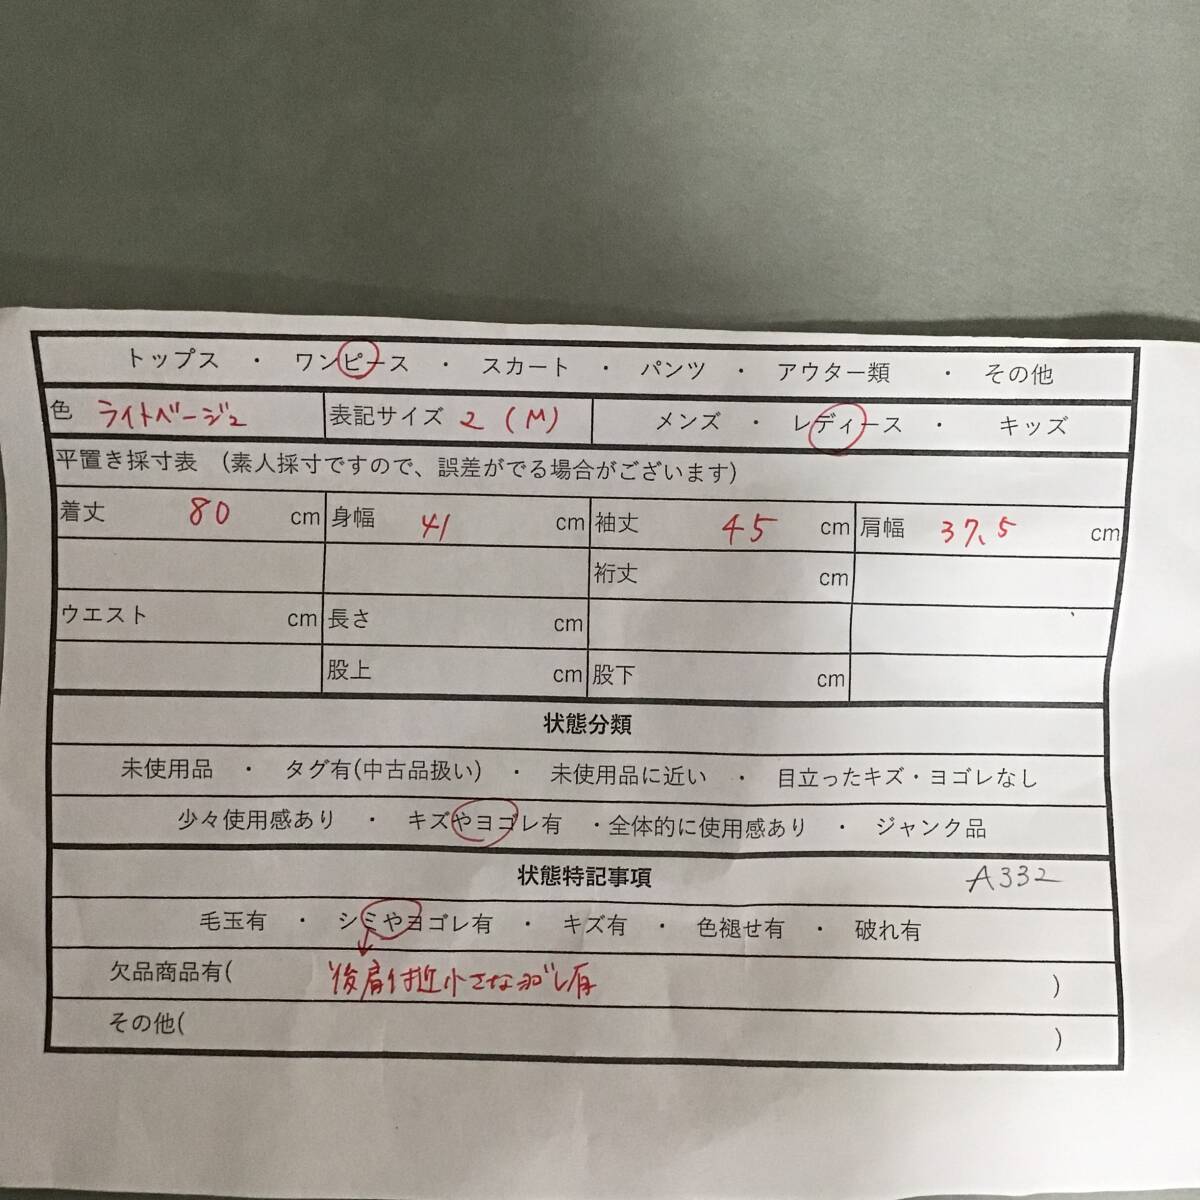 トップス ・ ワンピース ・ スカート ・ パンツ ・ アウター類 ・ その他
色 ライトベージュ 表記サイズ 2 (M) メンズ ・ レディース ・ キッズ
平置き採寸表 (素人採寸ですので、誤差がでる場合がございます)
着丈 80 cm 身幅 41 cm 袖丈 45 cm 肩幅 37.5 cm
裄丈 cm
ウエスト cm 長さ cm
股上 cm 股下 cm
状態分類
未使用品 ・ タグ有(中古品扱い) ・ 未使用品に近い ・ 目立ったキズ・ヨゴレなし
少々使用感あり ・ キズやヨゴレ有 ・全体的に使用感あり ・ ジャンク品
状態特記事項 A332
毛玉有 ・ シミやヨゴレ有 ・ キズ有 ・ 色褪せ有 ・ 破れ有
欠品商品有( 後肩付近小さなヨゴレ有 )
その他( )